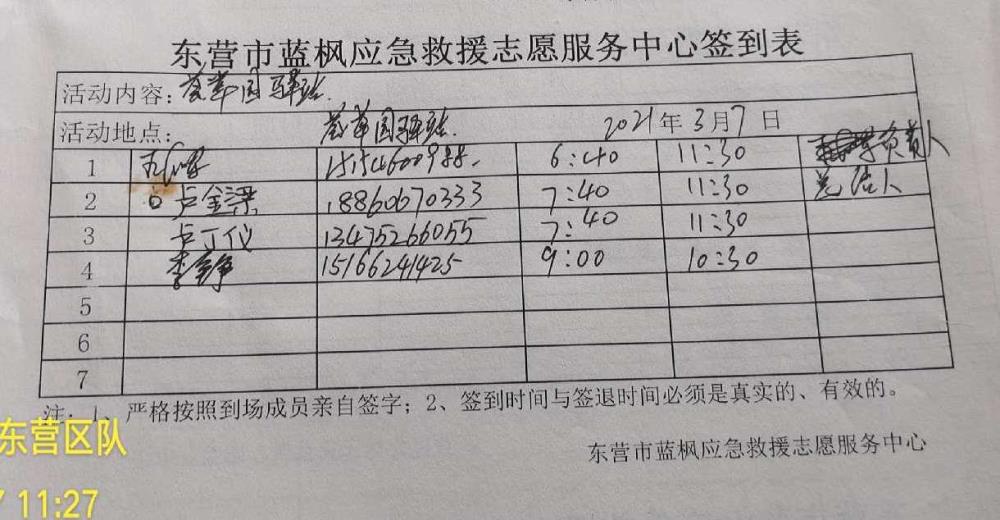 东营市蓝枫应急救援志愿服务中心签到表
活动内容: 荟萃园驿站
活动地点: 荟萃园驿站 2021年3月7日
1 15154600988 6:40 11:30 负责人
2 卢金梁 18860670333 7:40 11:30
3 卡丁仪 13475266055 7:40 11:30
4 李铮 15166241425 9:00 10:30
5
6
7
注: 1、严格按照到场成员亲自签字; 2、签到时间与签退时间必须是真实的、有效的。
东营区队
东营市蓝枫应急救援志愿服务中心
7 11:27